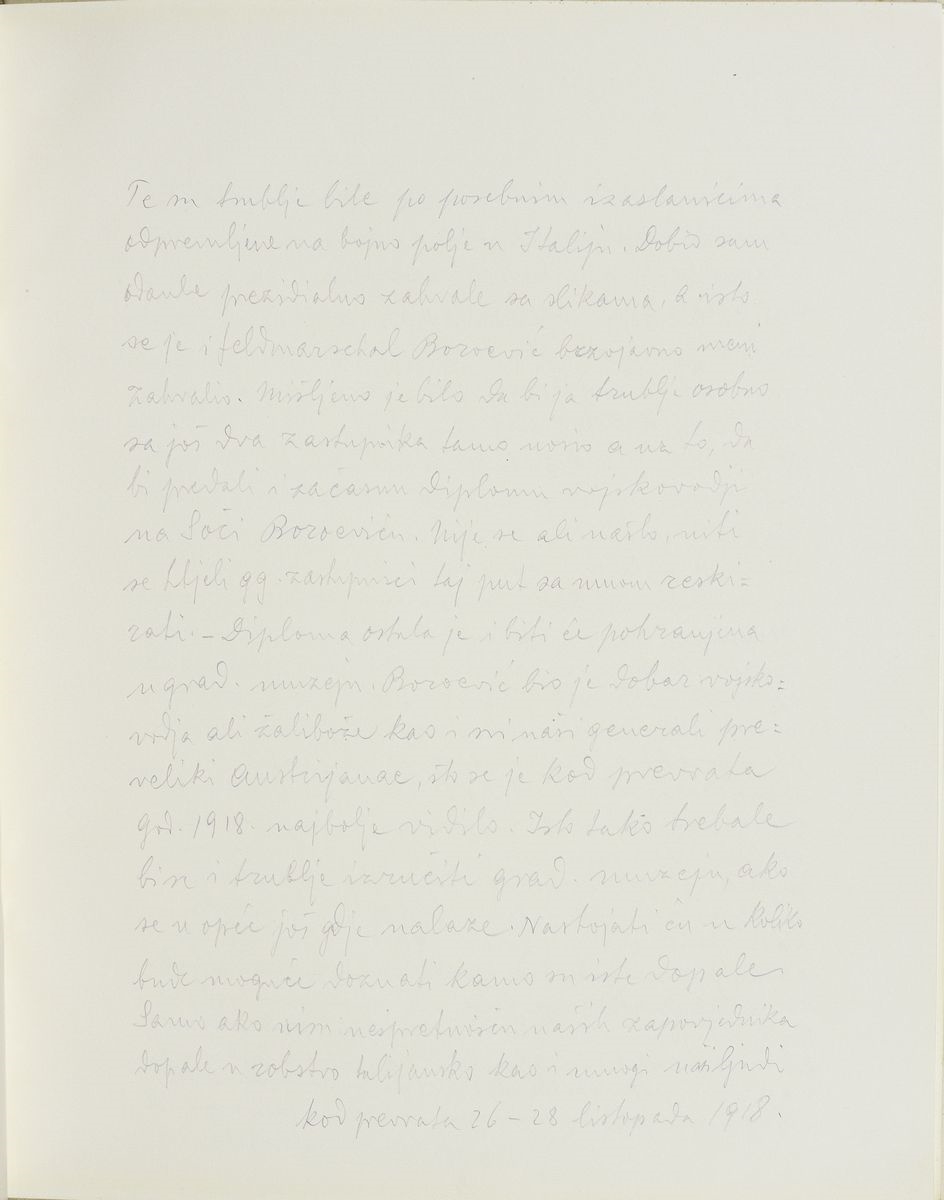 Te su trublje bile po posebnim izaslanicima
odpremljene na bojno polje u Italiju. Dobio sam
odanle prezidialno zahvale sa slikama, a isto
se je i feldmarschal Boroević brzojavno meni
zahvalio. Mišljeno je bilo da bi ja trublje osobno
sa još dva zastupnika tamo nosio a uz to, da
bi predali i začasnu diplomu vojskovodji
na Soči Boroeviću. Nije se ali našlo, niti
se htjeli gg. zastupnici taj put sa mnom reski=
rati. – Diploma ostala je i biti će pohranjena
u grad. muzeju. Boroević bio je dobar vojsko=
vodja ali žalibože kao i svi naši generali pre=
veliki Austrijanac, što se je kod prevrata
god. 1918. najbolje vidilo. Isto tako trebale
bi se i trublje izručiti grad. muzeju, ako
se u opće još gdje nalaze. Nastojati ću u koliko
bude moguće doznati kamo su iste dopale.
Samo ako nisu nespretnošću naših zapovjednika
dopale u robstvo talijansko kao i mnogi naši ljudi
kod prevrata 26 – 28 listopada 1918.